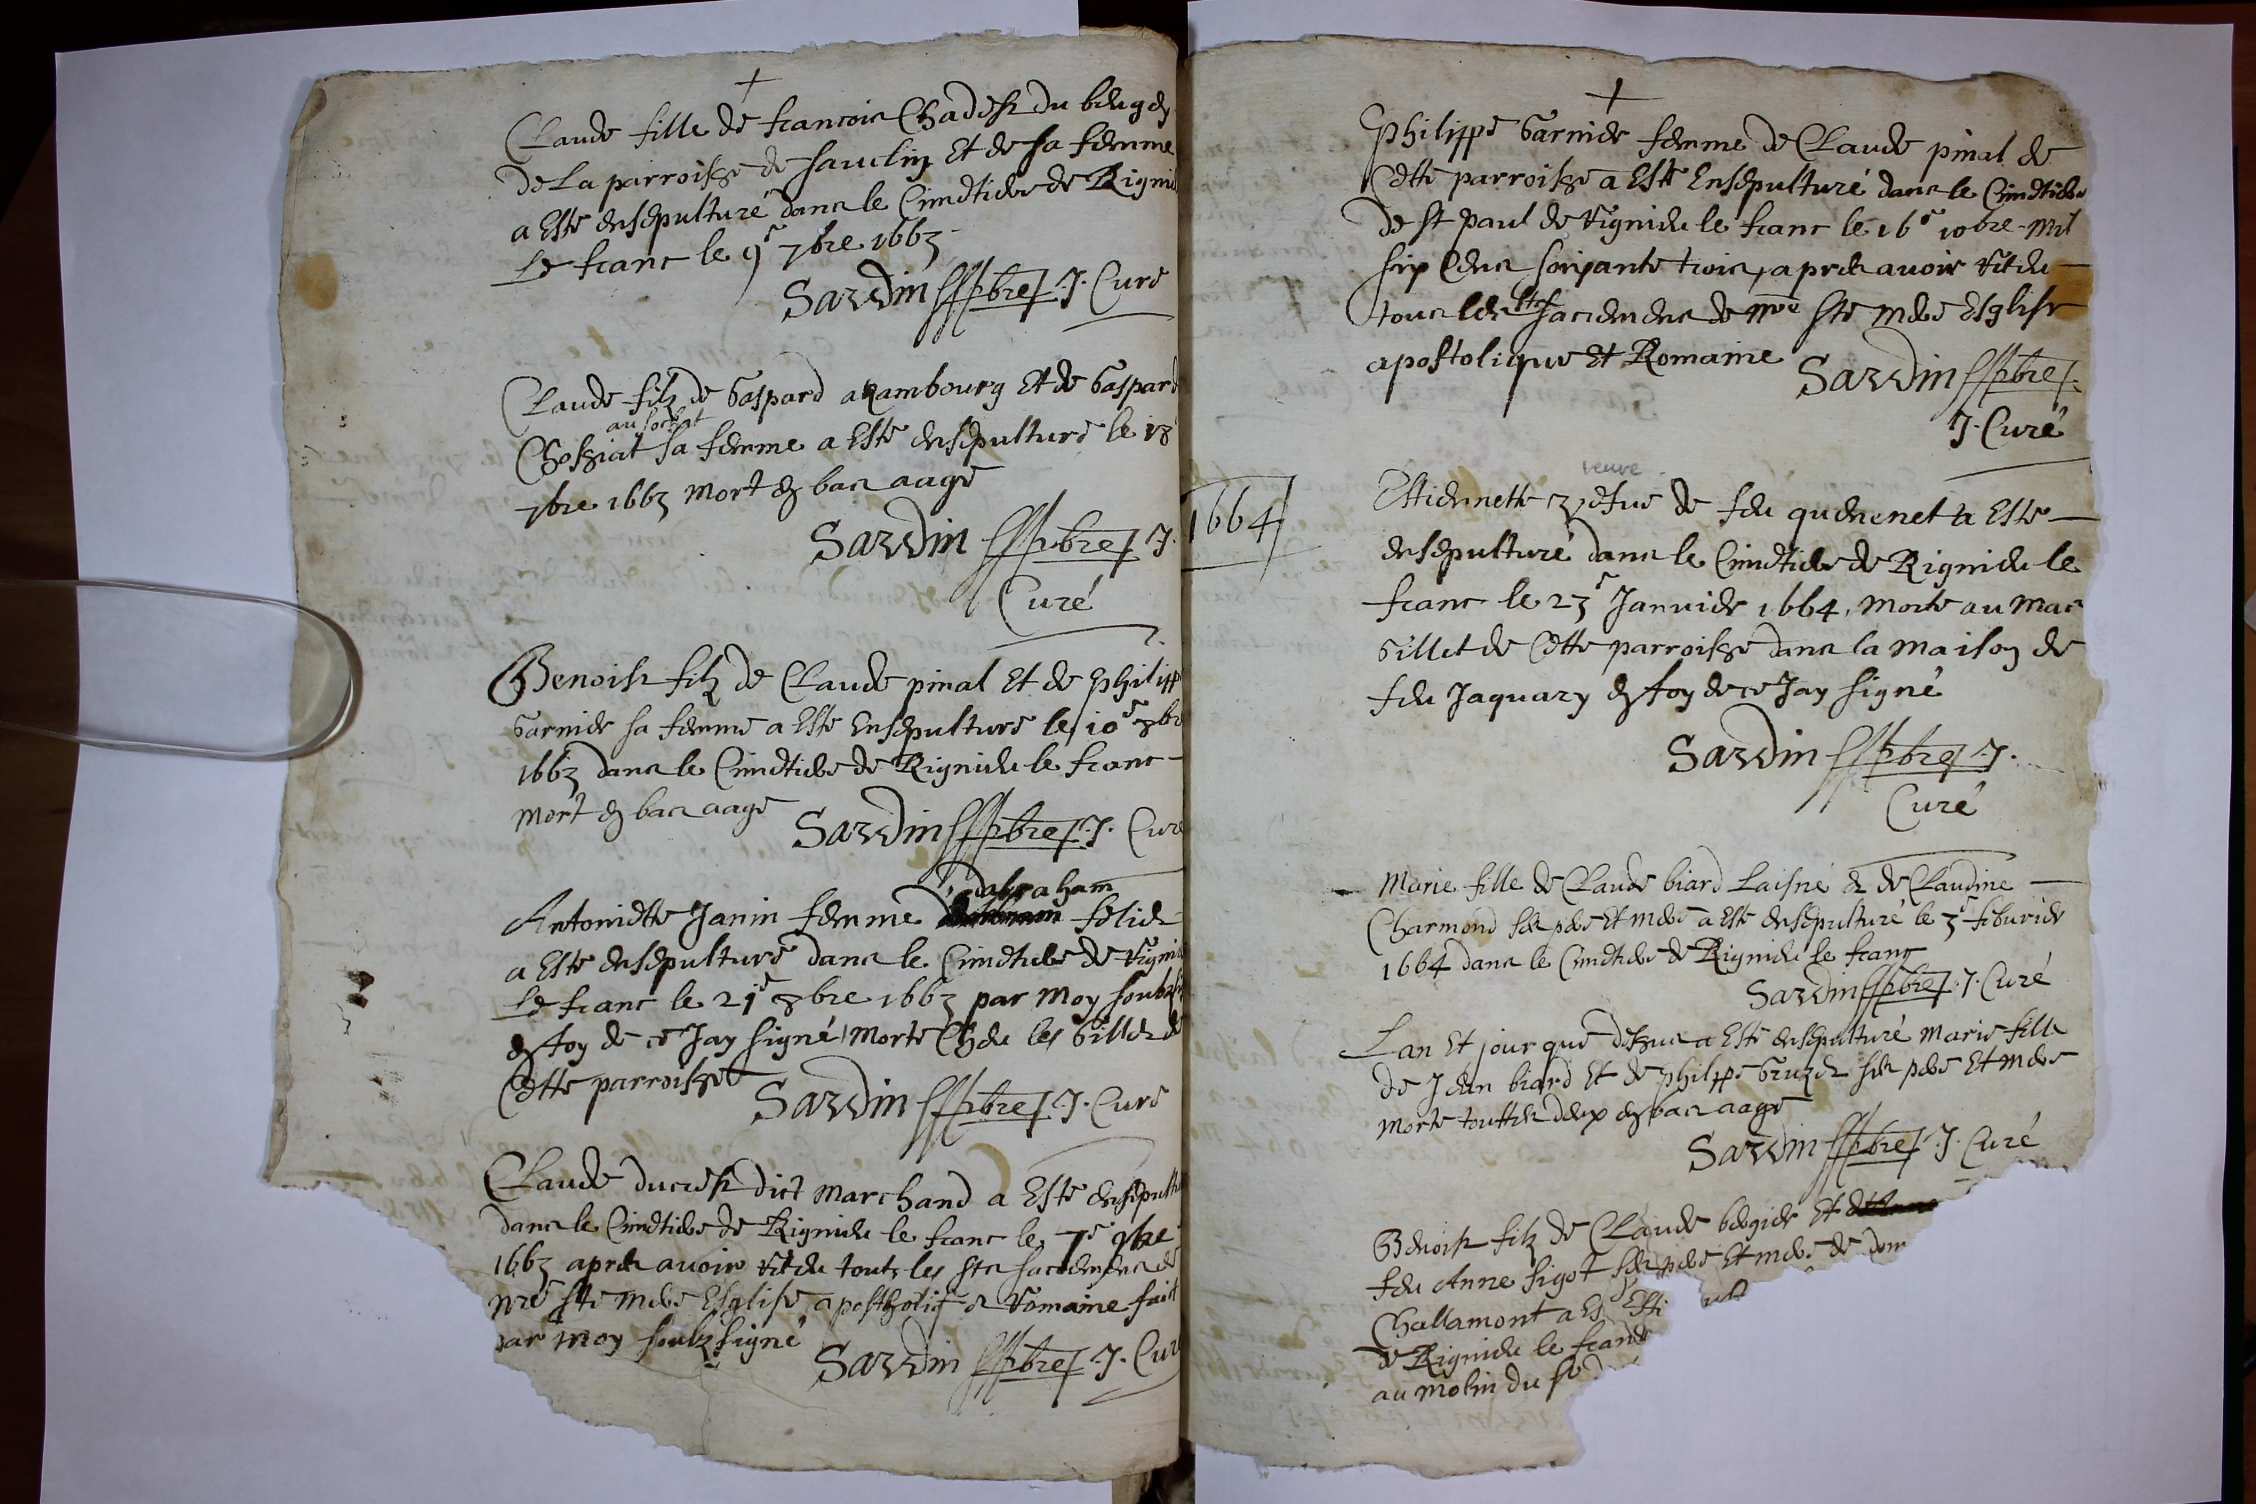 Claude fille de francois Chadesr du
de la parroisse de Et de sa femme
a Esté ensepulturé dans le Cimetiere de Rignie
Le franc le 9e 7bre 1663
Sardin pbre J. Curé
Claude filz de Gaspard arambourg Et de Gaspard
sa femme a Esté ensepulturé le 18
7bre 1663 mort en bas aage
Sardin pbre J.
Curé
Benoist filz de Claude pinal Et de philipp
Garnier sa femme a Esté Ensepulturé le 10e 8br
1663 dans le Cimetiere de Rignieu le franc
mort en bas aage
Sardin pbre J. Curé
dabraham
Antoinette Janin femme felier
a Esté ensepulturé dans le Cimetiere de rignie
Le franc le 21e 8bre 1663 par moy soubzsi
en foy de ce Jay signé morte Ches les Gilles de
Cette parroisse
Sardin pbre J. Curé
Claude ducrest dict marchand a Esté ensepultu
dans le Cimetiere de Rignieu le franc le 7e 9bre
1663 apres avoir receu touts les sts sacremens de
nre ste mere Esglise apostholiq & romaine faict
par moy soubzsigné
Sardin pbre J. Curé
philippe Garnier femme de Claude pinal de
Cette parroisse a Esté Ensepulturé dans le Cimetiere
de st paul de rignieu le franc le 16e 10bre mil
six Cens soixante trois, apres avoir receu
tous les sts sacremens de nre ste mere Esglise
apostolique Et Romaine
Sardin pbre
J. Curé
veuve
1664
Estiennette vefve de feu a Esté
ensepulturé dans le Cimetiere de Rignieu le
franc le 23e Janvier 1664, morte au mas
Gillet de Cette parroisse dans la maison de
feu Jaquary en foy de ce Jay signé
Sardin pbre J.
Curé
Marie fille de Claude biard Laisné & de Claudine
Charmond ses pere Et mere a Esté ensepulturé le 3e feburier
1664 dans le Cimetiere de Rignieu le franc
Sardin pbre J. Curé
Lan Et jour que dessus a Esté ensepulturé Marie fille
de Jean biard Et de philippe ses pere Et mere
morte touttes deux en bas aage
Sardin pbre J. Curé
Benoist filz de Claude bergier Et
feu Anne sigot ses pere Et mere de
Challamont a
de Rignieu le franc
au molin du